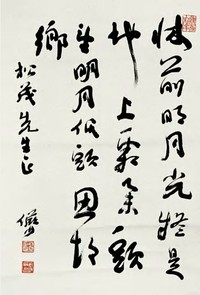 床前明月光疑是
地上霜举头
望明月低头思故
鄉
松茂先生正